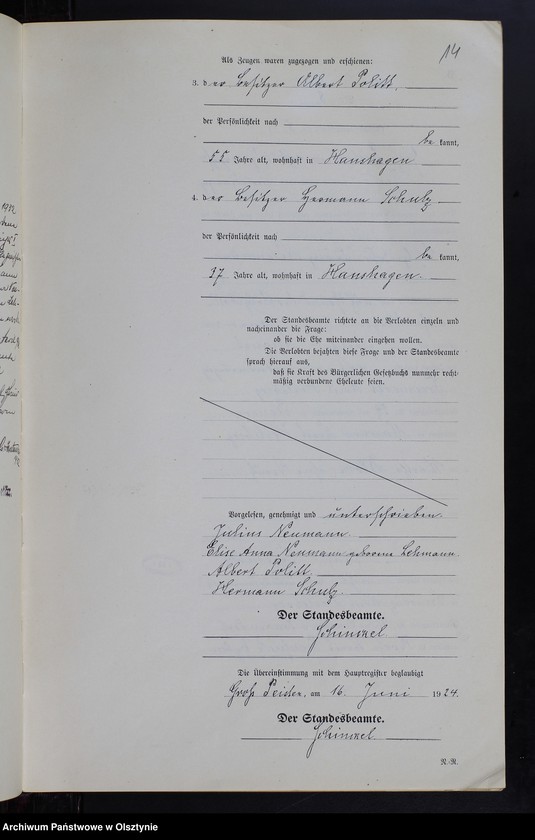 14
Als Zeugen waren zugezogen und erschienen:
3. der Besitzer Albert Politt,
der Persönlichkeit nach
bekannt,
55 Jahre alt, wohnhaft in Hanshagen
4. der Besitzer Hermann Schulz
der Persönlichkeit nach
bekannt,
37 Jahre alt, wohnhaft in Hanshagen.
Der Standesbeamte richtete an die Verlobten einzeln und
nacheinander die Frage:
ob sie die Ehe miteinander eingehen wollen.
Die Verlobten bejahten diese Frage und der Standesbeamte
sprach hierauf aus,
daß sie kraft des Bürgerlichen Gesetzbuchs nunmehr recht-
mäßig verbundene Eheleute seien.
Vorgelesen, genehmigt und unterschrieben.
Julius Neumann.
Elise Anna Neumann geborene Lehmann
Albert Politt.
Hermann Schulz.
Der Standesbeamte.
Schinkel
Die Übereinstimmung mit dem Hauptregister beglaubigt
Groß Peisten, am 16. Juni 1924.
Der Standesbeamte.
Schinkel.
N.-R.
Archiwum Państwowe w Olsztynie